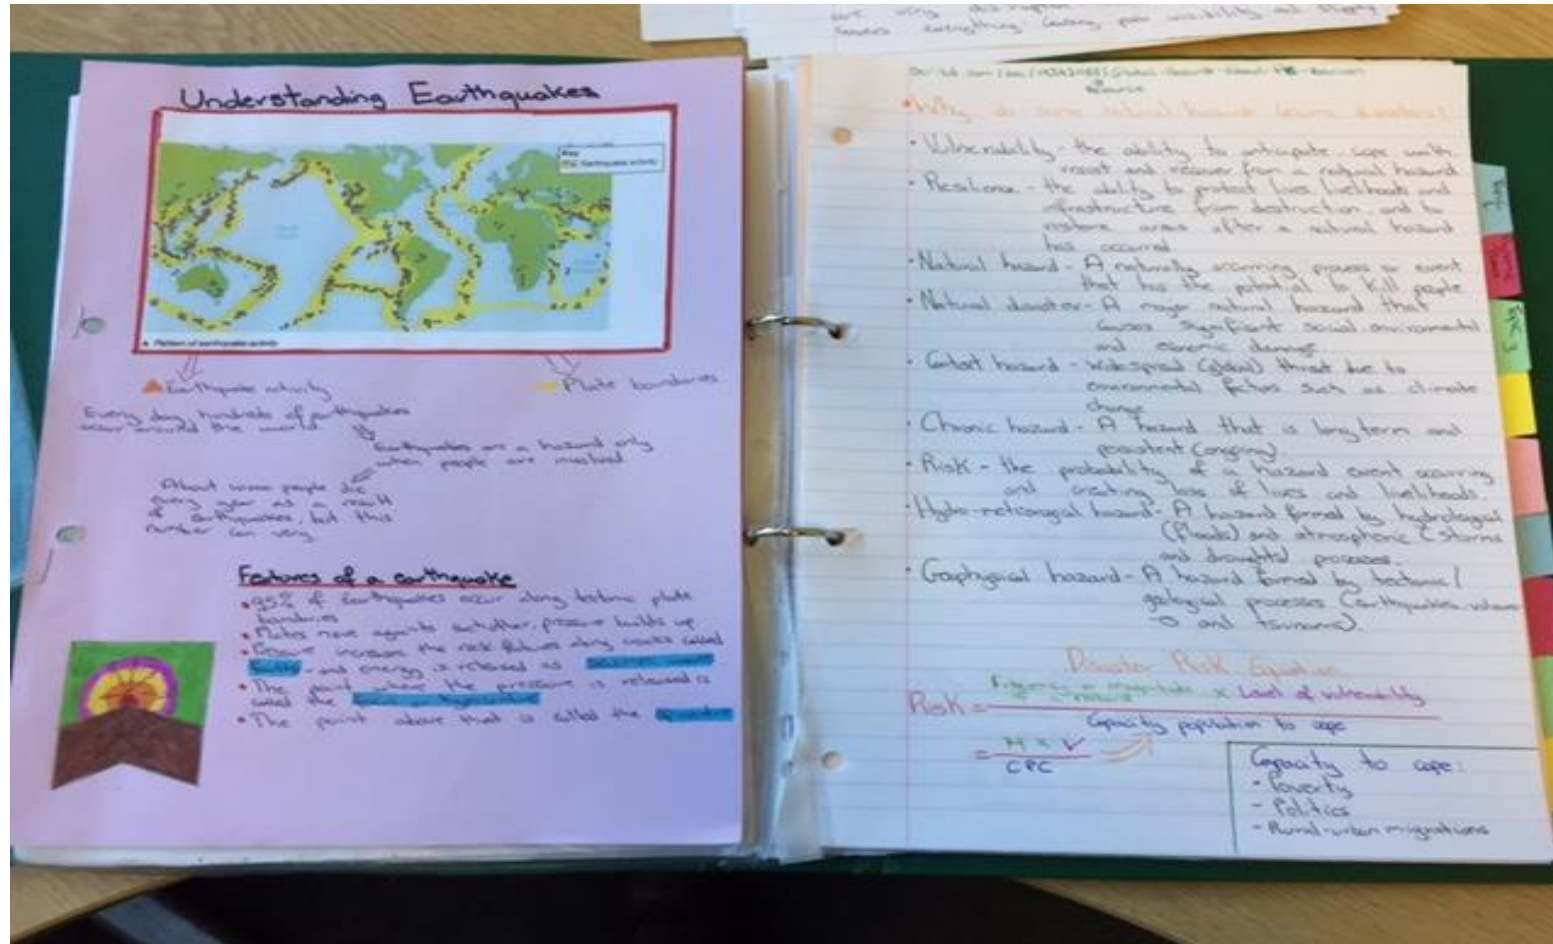 causes everything causing poor visibility and
Understanding Earthquakes
Key
Earthquake activity
Pattern of earthquake activity
Earthquake activity
Plate boundaries
Every day, hundreds of earthquakes
occur around the world
Earthquakes are a hazard only
when people are involved
About people die
every year as a result
of earthquakes, but this
number can vary
Features of a earthquake
• 95% of Earthquakes occur along tectonic plate
boundaries
• Plates move againts eachother, pressure builds up
• increases the rock fractures along cracks called
faults - and energy is released as
• The point where the pressure is released is
called the
• The point above that is called the
• Why do some natural hazards become disasters?
• Vulnerability - the ability to anticipate cope with
resist and recover from a natural hazard
• Resilience - the ability to protect lives livelihoods and
infrastructure from destruction, and to
restore areas after a natural hazard
has occurred
• Natural hazard - A naturally occurring process or event
that has the potential to kill people
• Natural disaster - A major natural hazard that
causes significant social, environmental
and economic damage
• hazard - widespread (global) threat due to
environmental factors such as climate
change
• Chronic hazard - A hazard that is long term and
persistent (ongoing)
• Risk - the probability of a hazard event occurring
and creating loss of lives and livelihoods.
• hazard - A hazard formed by hydrological
(floods) and atmospheric (storms
and droughts) processes.
• Geophysical hazard - A hazard formed by tectonic/
geological processes (earthquakes,
and tsunamis).
Disaster Risk Equation
Risk = x Level of vulnerability
Capacity population to cope
= H x V
CPC
Capacity to cope:
- Poverty
- Politics
- Rural-urban migrations